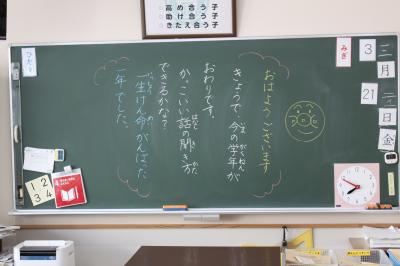 高め合う子
助け合う子
きたえ合う子
ひだり
みぎ
3
月
21
日
金
おはようございます
きょうで 今の学年が
おわりです。
か、こいい話の聞き方
できるかな?
一生けん命がんばった
一年でした。
いま
がくねん
はなし
き
かた
いちねん
1 2
3 4